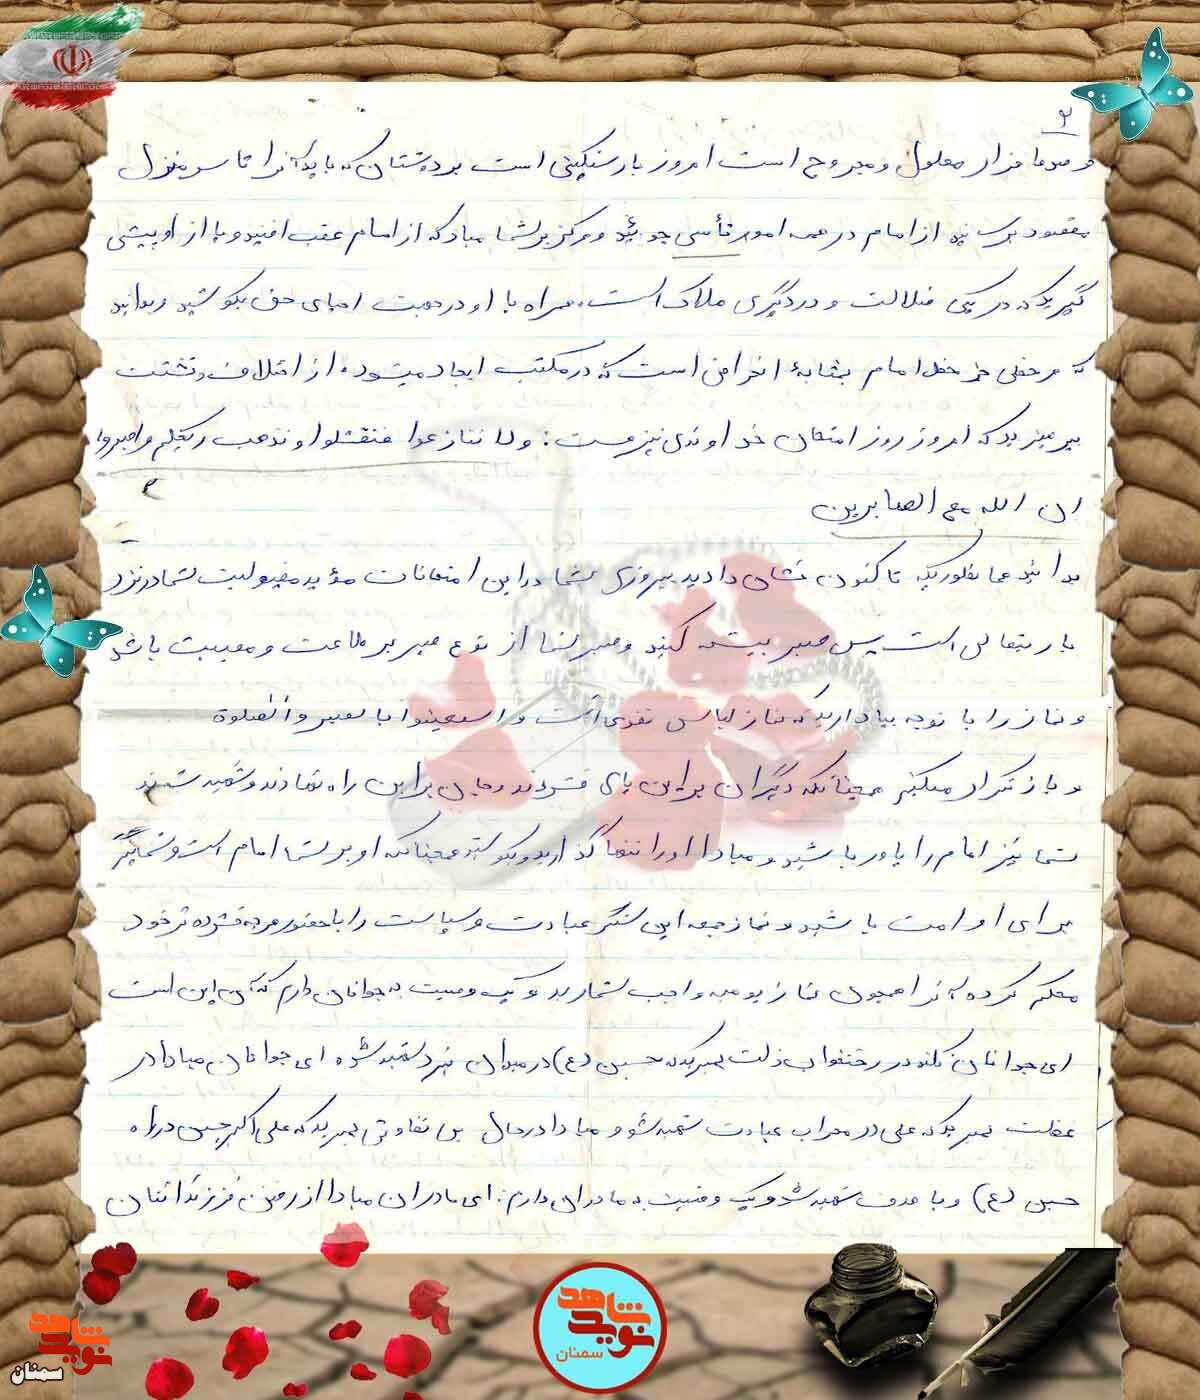 ۲
و صدها هزار معلول و مجروح است امروز بار سنگینی است بر دوشتان که باید آنرا تا سر منزل
مقصود برسانید از امام در همه امور تأسی جوئید و هرگز بر شما مباد که از امام عقب افتید و یا از او پیشی
گیرید که در یکی ضلالت و در دیگری هلاکت است همراه با او در جهت احیای حق بکوشید و بدانید
که هر خطی جز خط امام بمثابهٔ انحرافی است که در مکتب ایجاد میشود، از اختلاف و تشتت
بپرهیزید که امروز روز امتحان خداوندی نیز هست: ولا تنازعوا فتفشلوا و تذهب ریحکم واصبروا
ان الله مع الصابرین
بدانید همانطوریکه تا کنون نشان دادید پیروزی شما در این امتحانات مؤید مقبولیت شما در نزد
باریتعالی است پس صبر پیشه کنید و صبر شما از نوع صبر بر طاعت و مصیبت باشد
و نماز را با توجه بپا دارید که نماز لباس تقوی است و استعینوا بالصبر والصلوة
و باز تکرار میکنم همچنانکه دیگران بر این پای فشردند و جان بر این راه نهادند و شهید شدند
شما نیز امام را یاور باشید و مبادا او را تنها گذارید و بکوشید همچنانکه او بر شما امام است و شما نیز
برای او امت باشید و نماز جمعه این سنگر عبادت و سیاست را با حضور هر چه فشرده تر خود
محکم کرده آنرا همچون نماز یومیه واجب شمارید و یک وصیت به جوانان دارم که آن این است
ای جوانان نکند در رختخواب ذلت بمیرید که حسین (ع) در میدان نبرد شهید شد، ای جوانان مبادا در
غفلت بمیرید که علی در محراب عبادت شهید شد و مبادا در حال بی تفاوتی بمیرید که علی اکبر حسین در راه
حسین (ع) و با هدف شهید شد و یک وصیت به مادران دارم: ای مادران مبادا از رفتن فرزندانتان
شاهد
نوید
سمنان
شاهد
نوید
سمنان